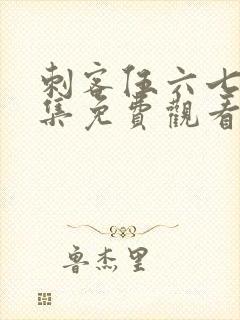 刺客伍六七
集免費觀看
魯杰里